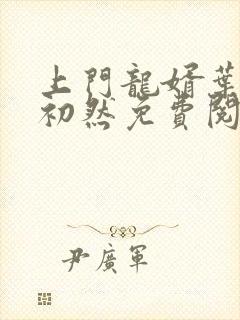 上門龍婿葉
初然免費閱
尹廣軍